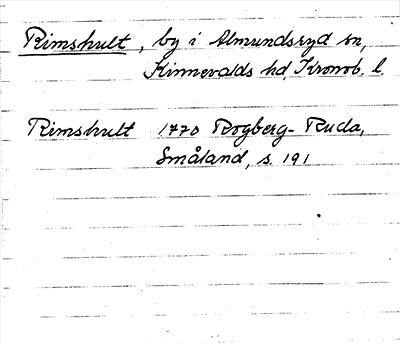 Rimshult, by i Almundsryd sn,
Kinnevalds hd, Kronob. l.
Rimshult 1770 Rogberg-Ruda,
Småland, s. 191